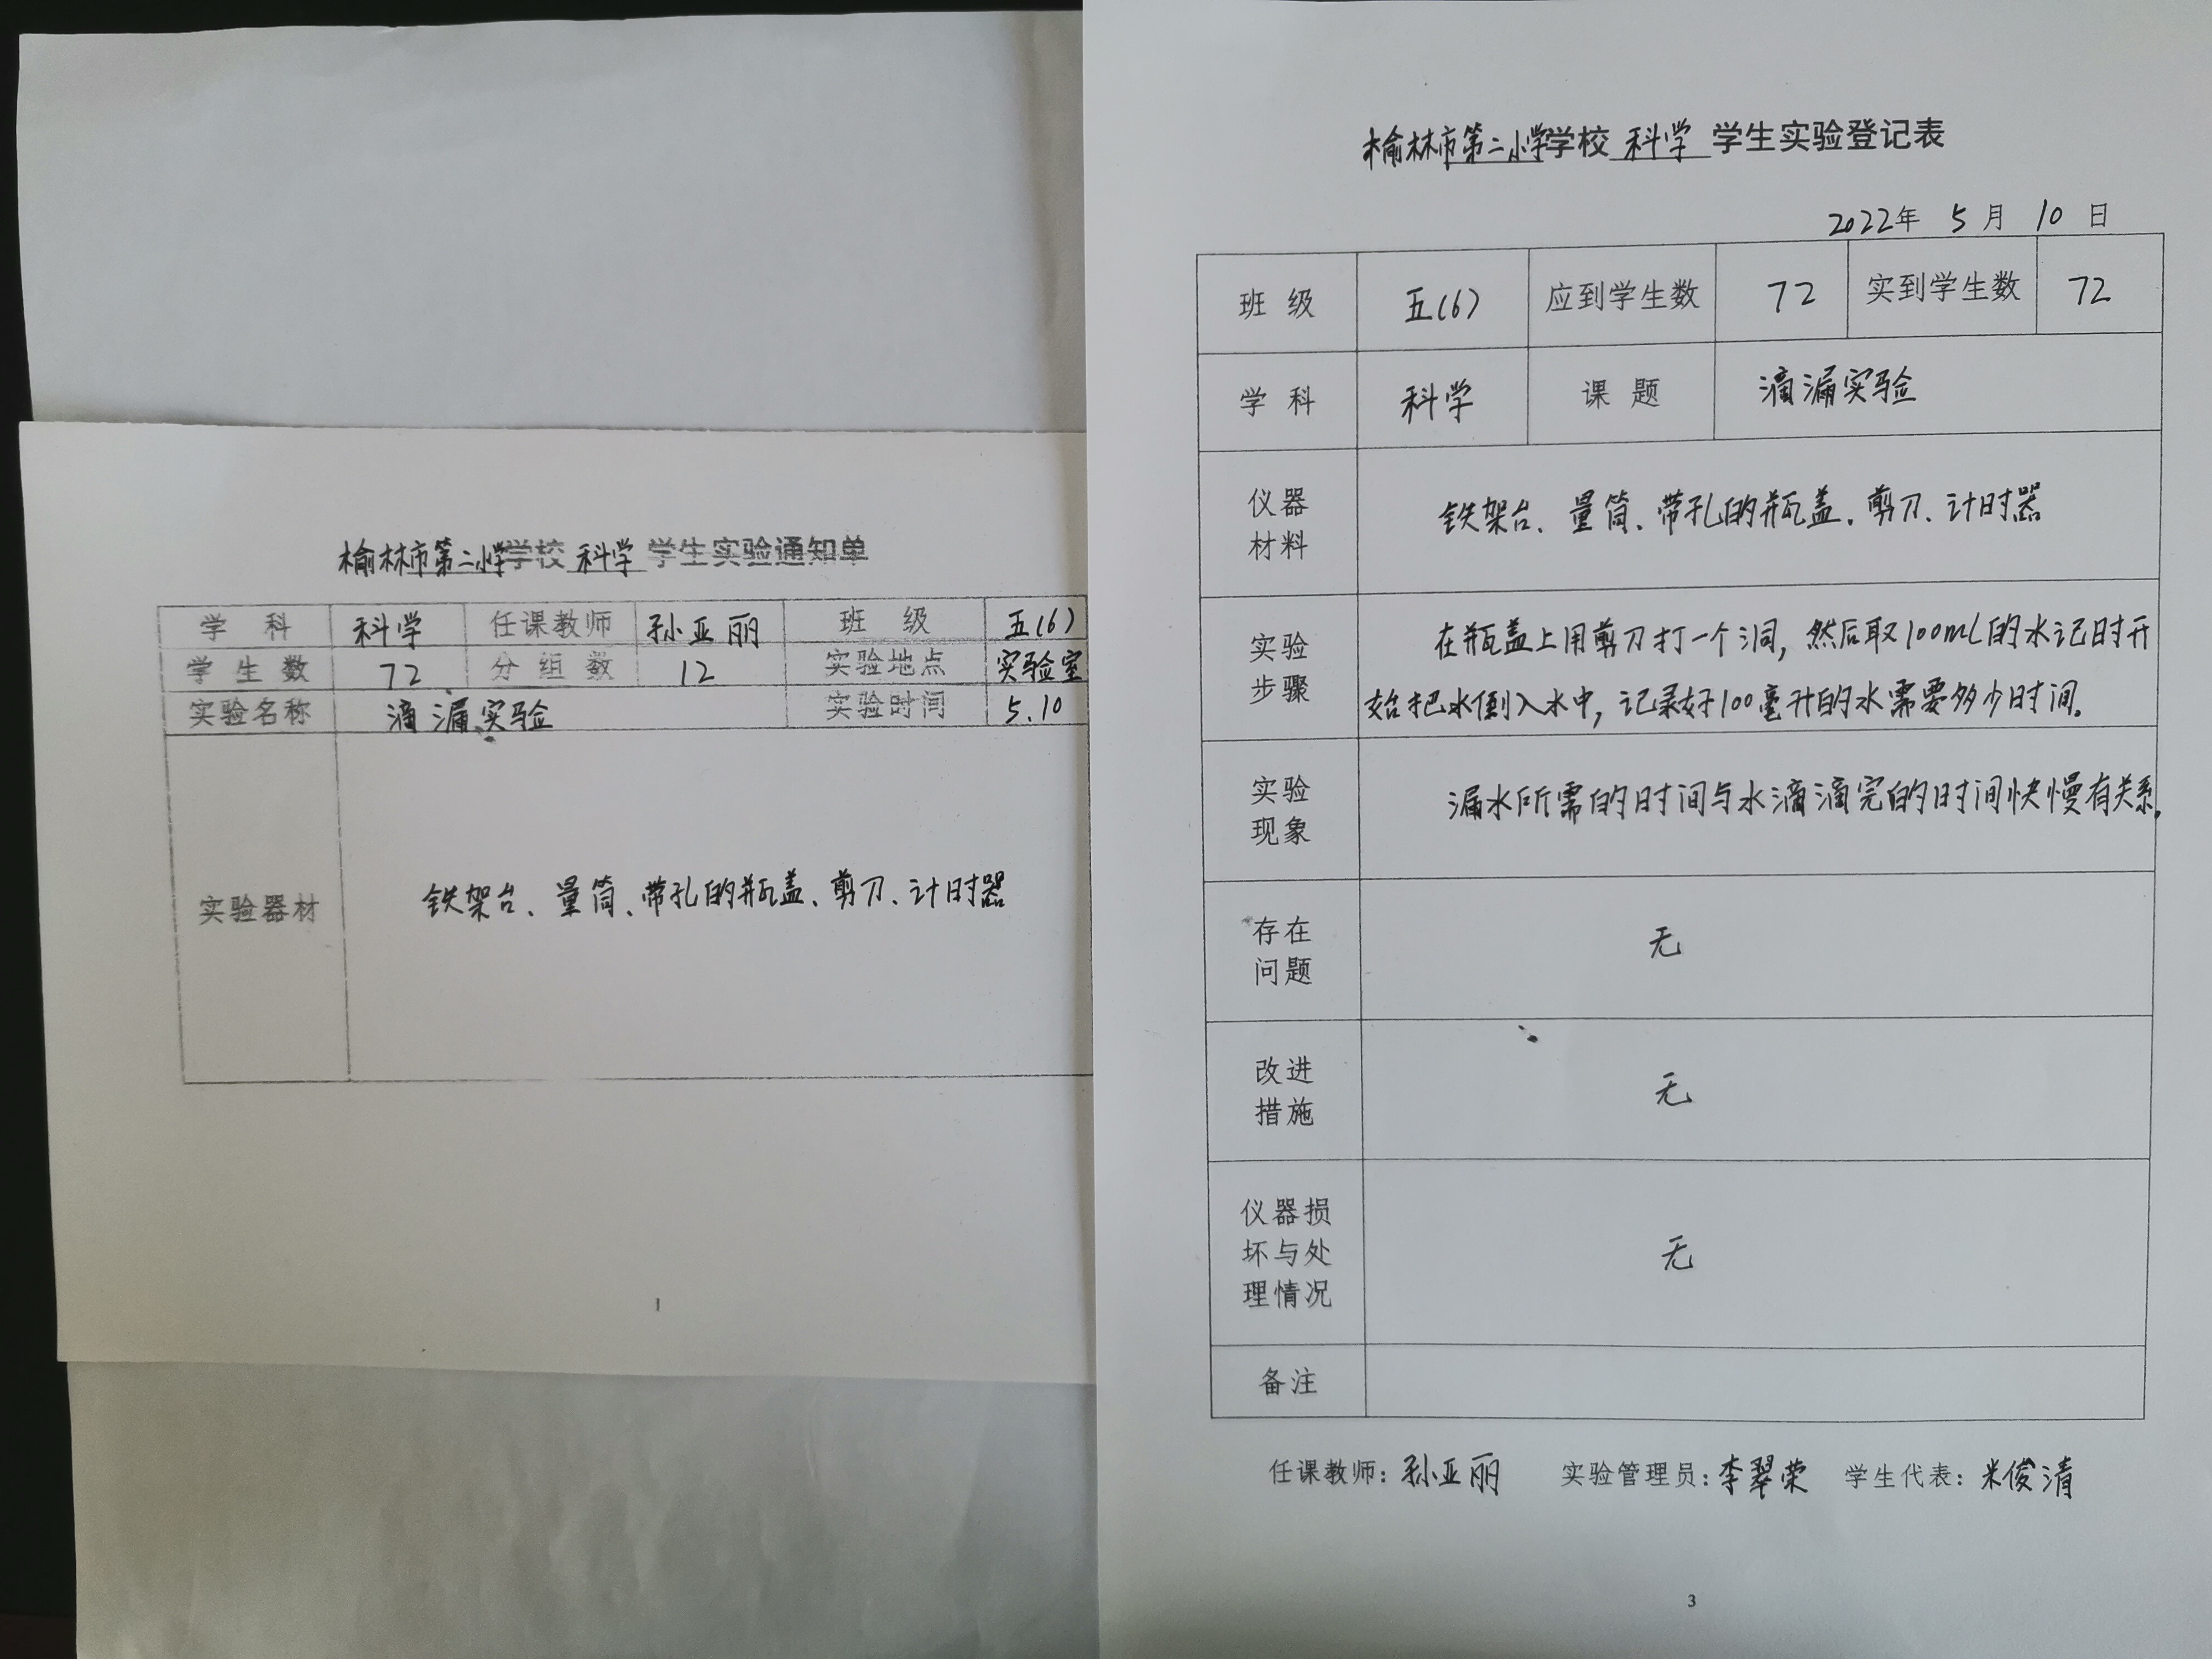 榆林市第二小学学校 科学 学生实验通知单
学 科 科学 任课教师 孙亚丽 班 级 五(6)
学 生 数 72 分 组 数 12 实验地点 实验室
实验名称 滴漏实验 实验时间 5.10
实验器材 铁架台、量筒、带孔的瓶盖、剪刀、计时器
1
榆林市第二小学学校 科学 学生实验登记表
2022年 5 月 10 日
班 级 五(6) 应到学生数 72 实到学生数 72
学 科 科学 课 题 滴漏实验
仪器
材料
铁架台、量筒、带孔的瓶盖、剪刀、计时器
实验
步骤
在瓶盖上用剪刀打一个洞，然后取100mL的水记时开
始把水倒入水中，记录好100毫升的水需要多少时间。
实验
现象
漏水所需的时间与水滴滴完的时间快慢有关系。
存在
问题
无
改进
措施
无
仪器损
坏与处
理情况
无
备注
任课教师：孙亚丽 实验管理员：李翠荣 学生代表：米俊清
3